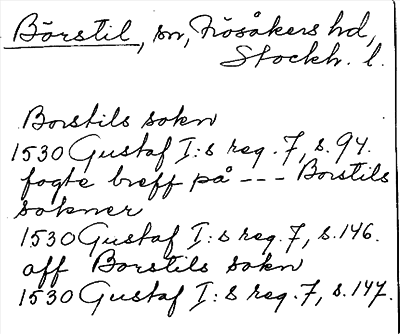 Börstil, sn, Frösåkers hd,
Stockh. l.
Borstils sokn
1530 Gustaf I:s reg. 7, s. 94.
fogte breff på --- Borstils
sokner
1530 Gustaf I:s reg. 7, s. 146.
aff Borstils sokn
1530 Gustaf I:s reg. 7, s. 147.